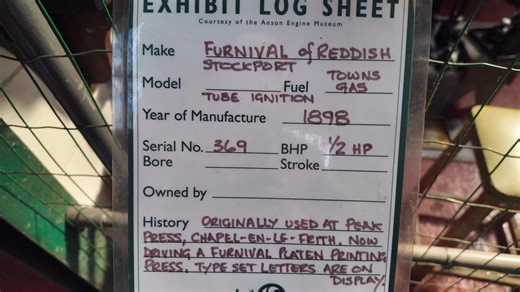 EXHIBIT LOG SHEET
Courtesy of the Anson Engine Museum
Make FURNIVAL of REDDISH
STOCKPORT TOWNS
Model Fuel GAS
TUBE IGNITION
Year of Manufacture 1898
Serial No. 369 BHP 1/2 HP
Bore Stroke
Owned by
History ORIGINALLY USED AT PEAK
PRESS, CHAPEL-EN-LE-FRITH. NOW
DRIVING A FURNIVAL PLATEN PRINTING
PRESS. TYPE SET LETTERS ARE ON
DISPLAY.